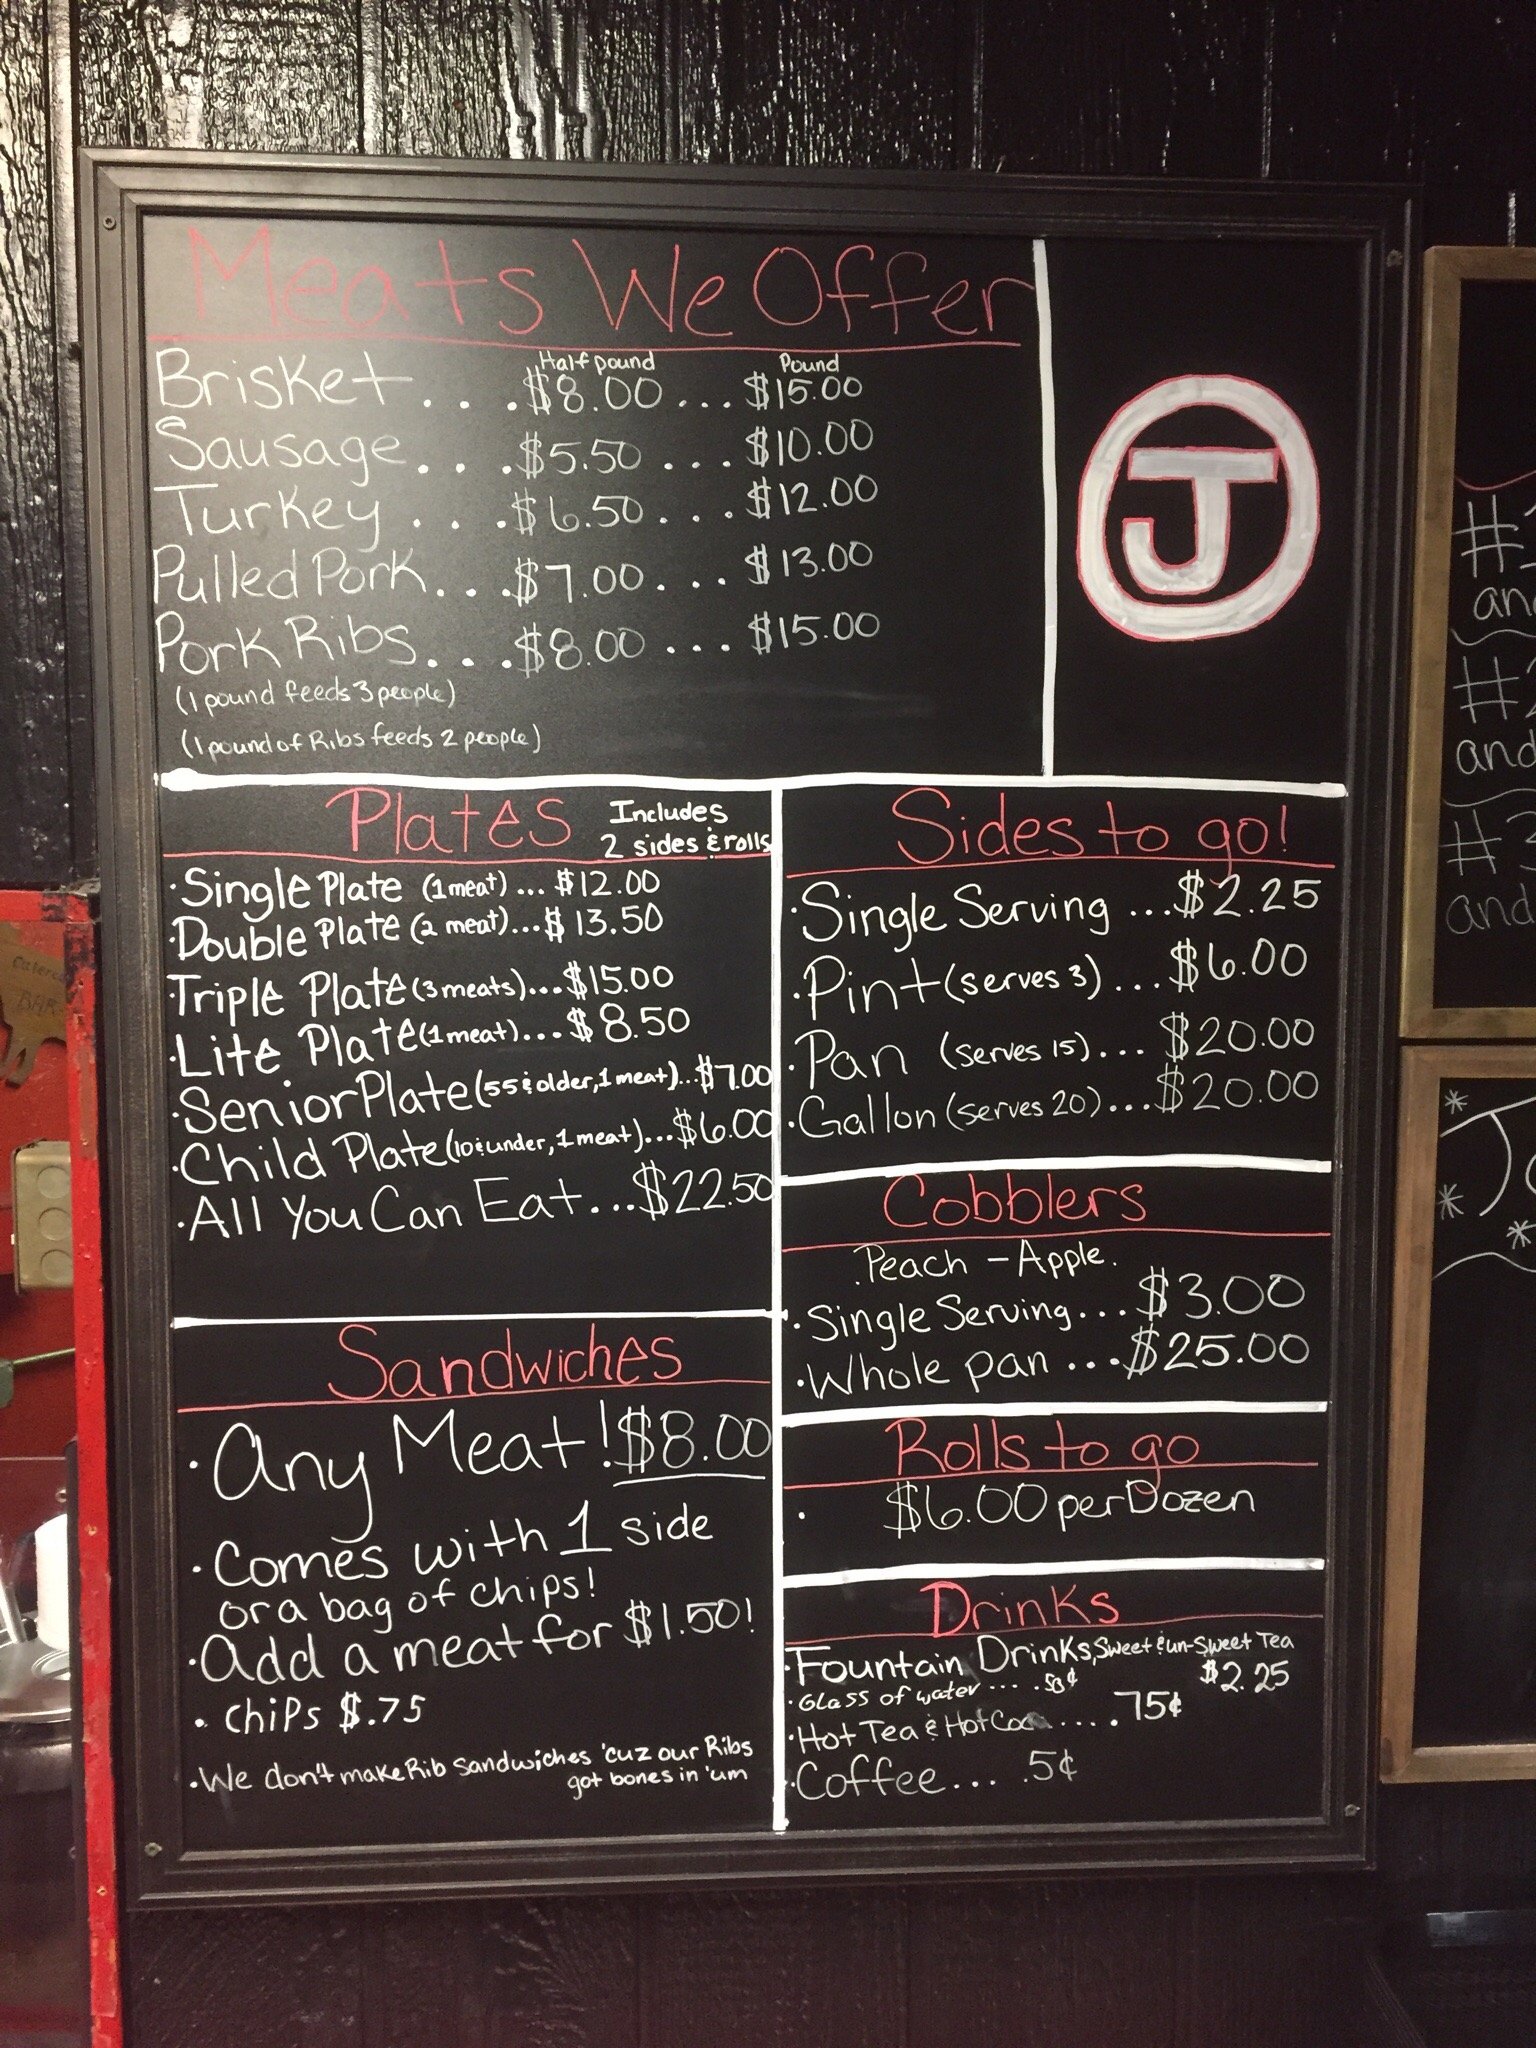 Meats We Offer
Half pound Pound
Brisket . . . . $8.00 . . . $15.00
Sausage . . . . $5.50 . . . $10.00
Turkey . . . . $6.50 . . . $12.00
Pulled Pork . . . $7.00 . . . $13.00
Pork Ribs . . . . $8.00 . . . $15.00
(1 pound feeds 3 people)
(1 pound of Ribs feeds 2 people)
J
Plates Includes
2 sides & rolls
· Single Plate (1 meat) ... $12.00
· Double Plate (2 meat) ... $13.50
· Triple Plate (3 meats) ... $15.00
· Lite Plate (1 meat) ... $8.50
· Senior Plate (55 & older, 1 meat) ... $7.00
· Child Plate (10 & under, 1 meat) ... $6.00
· All You Can Eat ... $22.50
Sandwiches
· Any Meat! $8.00
· Comes with 1 side
or a bag of chips!
· Add a meat for $1.50!
· Chips $.75
· We don't make Rib Sandwiches 'cuz our Ribs
got bones in 'um
Sides to go!
· Single Serving ... $2.25
· Pint (serves 3) ... $6.00
· Pan (serves 15) ... $20.00
· Gallon (serves 20) ... $20.00
Cobblers
. Peach - Apple .
· Single Serving ... $3.00
· Whole pan ... $25.00
Rolls to go
· $6.00 per Dozen
Drinks
· Fountain Drinks, Sweet & un-Sweet Tea
$2.25
· Glass of water ... .50¢
· Hot Tea & Hot ..... 75¢
· Coffee ... .5¢
#
an
#
and
#3
and